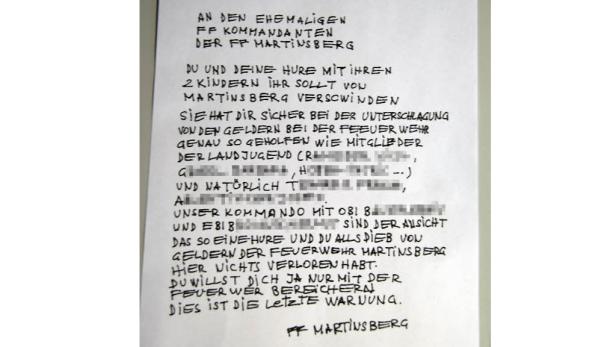 AN DEN EHEMALIGEN
FF KOMMANDANTEN
DER FF MARTINSBERG
DU UND DEINE HURE MIT IHREN
2 KINDERN IHR SOLLT VON
MARTINSBERG VERSCWINDEN
SIE HAT DIR SICHER BEI DER UNTERSCHLAGUNG
VON DEN GELDERN BEI DER FEEUER WEHR
GENAU SO GEHOLFEN WIE MITGLIEDER
DER LANDJUGEND (
...)
UND NATÜRLICH
UNSER KOMMANDO MIT OBI
UND EBI SIND DER ANSICHT
DAS SO EINE HURE UND DU ALLS DIEB VON
GELDERN DER FEUERWEHR MARTINSBERG
HIER NICHTS VERLOREN HABT.
DU WILLST DICH JA NUR MIT DER
FEUERWER BEREICHERN
DIES IST DIE LETZTE WARNUNG.
FF MARTINSBERG